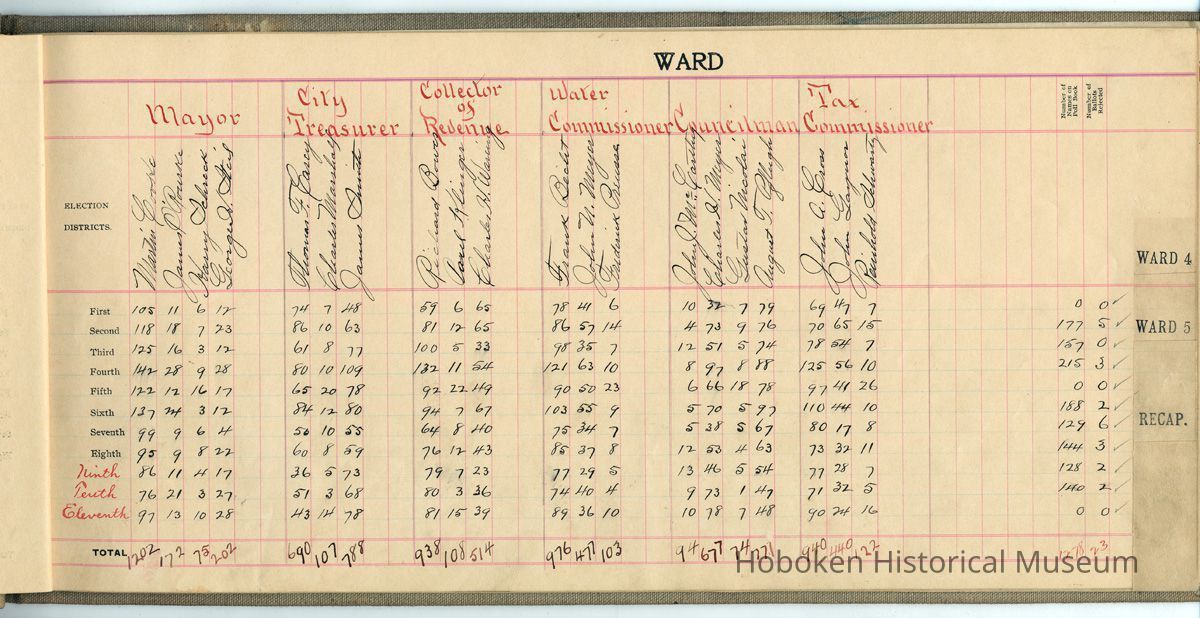 WARD
Mayor City Treasurer Collector of Revenue Water Commissioner Councilman Tax Commissioner Number of Names on Poll Book Number of Ballots Rejected
ELECTION DISTRICTS.
Martin Cooke James O'Rourke Harry Schreck Thomas F. Garcy Charles Marshall James Smith Richard Bowe Paul Klinger Charles H. Waring Frank Bechet John M. Meyer Frederick John J. McCarthy Charles H. Meyer Gustav Nicolai August T. John A. Cross John Gaynor Schwartz
First 105 11 6 12 74 7 48 59 6 65 78 41 6 10 32 7 79 69 47 7 0 0 ✓
Second 118 18 7 23 86 10 63 81 12 65 86 57 14 4 73 9 76 70 65 15 177 5 ✓
Third 125 16 3 12 61 8 77 100 5 33 98 35 7 12 51 5 74 78 54 7 157 0 ✓
Fourth 142 28 9 28 80 10 109 132 11 54 121 63 10 8 97 8 88 125 56 10 215 3 ✓
Fifth 122 12 16 17 65 20 78 92 22 49 90 50 23 6 66 18 78 97 41 26 0 0 ✓
Sixth 137 24 3 12 84 12 80 94 7 67 103 55 9 5 70 5 97 110 44 10 188 2 ✓
Seventh 99 9 6 4 50 10 55 64 8 40 75 34 7 5 38 5 67 80 17 8 129 6 ✓
Eighth 95 9 8 22 60 8 59 76 12 43 85 37 8 12 53 4 63 73 32 11 144 3 ✓
Ninth 86 11 4 17 36 5 73 79 7 23 77 29 5 13 46 5 54 77 28 7 128 2 ✓
Tenth 76 21 3 27 51 3 68 80 3 36 74 40 4 9 73 1 47 71 32 5 140 2 ✓
Eleventh 97 13 10 28 43 14 78 81 15 39 89 36 10 10 78 7 48 90 24 16 0 0 ✓
TOTAL 1202 172 75 202 690 107 788 938 108 514 976 477 103 94 677 74 771 940 440 122 1278 23
WARD 4
WARD 5
RECAP.
Hoboken Historical Museum